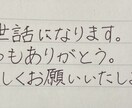 世話になります。
つもありがとう。
しくお願いいたしま